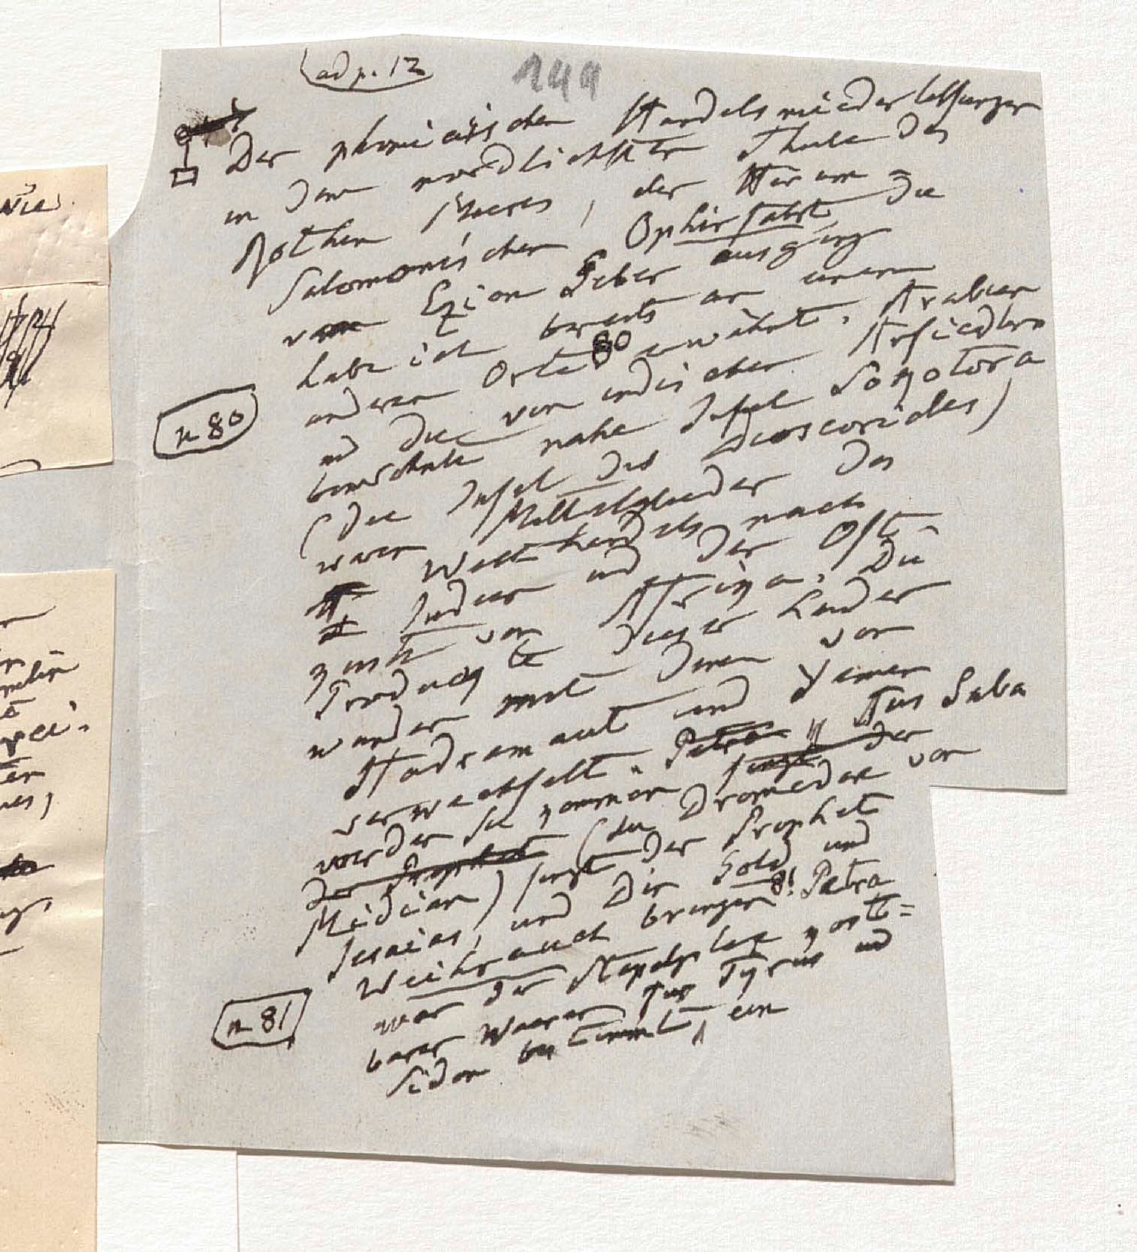 ad p. 12
199
Der phönicischen Handelsniederlassungen
in dem nördlichsten Theile des
Rothen Meeres, der Hiram=
Salomonischen Ophirfahrt die
von Ezion Geber ausging
habe ich bereits an einem
anderen Orte 80 erwähnt. Arabien
und die von indischen Ansiedlern
n 80
bewohnte nahe Insel Soqotora
(die Insel des Dioscorides)
waren Mittelglieder des
Welthandels nach
Indien und der Ost-
Küste von Afrika. Die
Producte dieser Länder
wurden mit denen von
Hadramaut und Yemen
verwechselt. Petra „Aus Saba
werden sie kommen singt der
der Prophet (die Dromedare von
Midian) singt der Prophet
Jesaias, und Dir Gold und
Weihrauch bringen 81 Petra
war der Stapelplatz kost=
n 81
barer Waaren für Tyrus und
Sidon bestimmt, ein